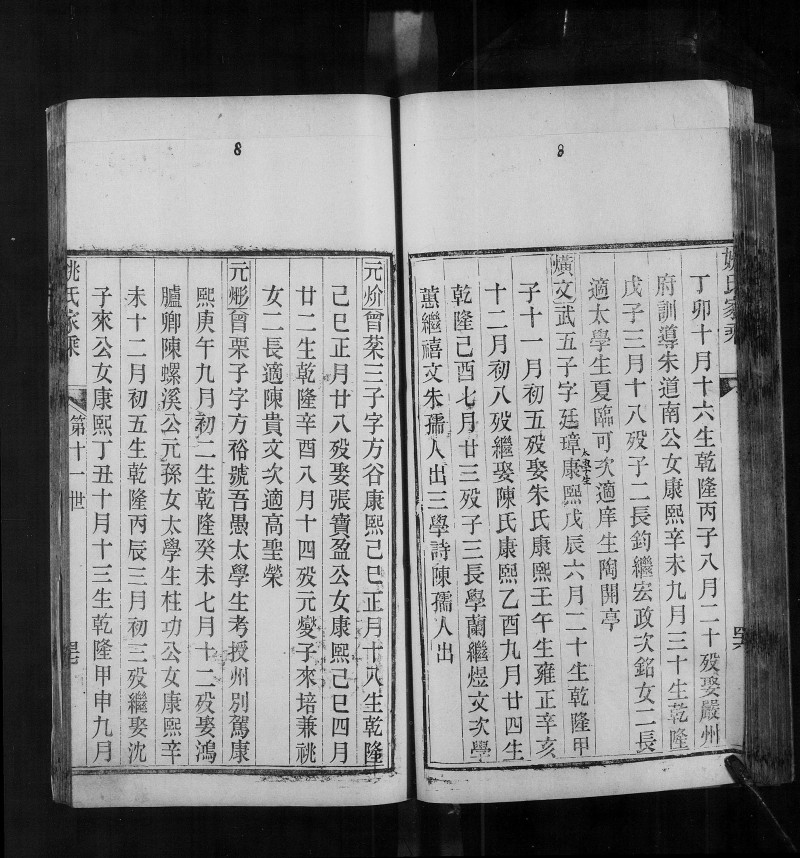 8
姚氏家乘
丁卯十月十六生乾隆丙子八月二十歿娶嚴州
府訓導朱道南公女康熙辛未九月三十生乾隆
戊子三月十八歿子二長鈞繼宏政次銘女二長
適太學生夏臨可次適庠生陶開亭
爌文武五子字廷璋太學生康熙戊辰六月二十生乾隆甲
子十一月初五歿娶朱氏康熙壬午生雍正辛亥
十二月初八歿繼娶陳氏康熙乙酉九月廿四生
乾隆己酉七月廿三歿子三長學蘭繼煜文次學
蕙繼禧文朱孺人出三學詩陳孺人出
8
元炌曾棻三子字方谷康熙己巳正月十八生乾隆
己巳正月廿八歿娶張寶盈公女康熙己巳四月
廿二生乾隆辛酉八月十四歿元燮子來培兼祧
女二長適陳貴文次適高聖榮
元彨曾栗子字方裕號吾愚太學生考授州別駕康
熙庚午九月初二生乾隆癸未七月十二歿娶鴻
臚卿陳螺溪公元孫女太學生柱功公女康熙辛
未十二月初五生乾隆丙辰三月初三歿繼娶沈
子來公女康熙丁丑十月十三生乾隆甲申九月
姚氏家乘
第十一世